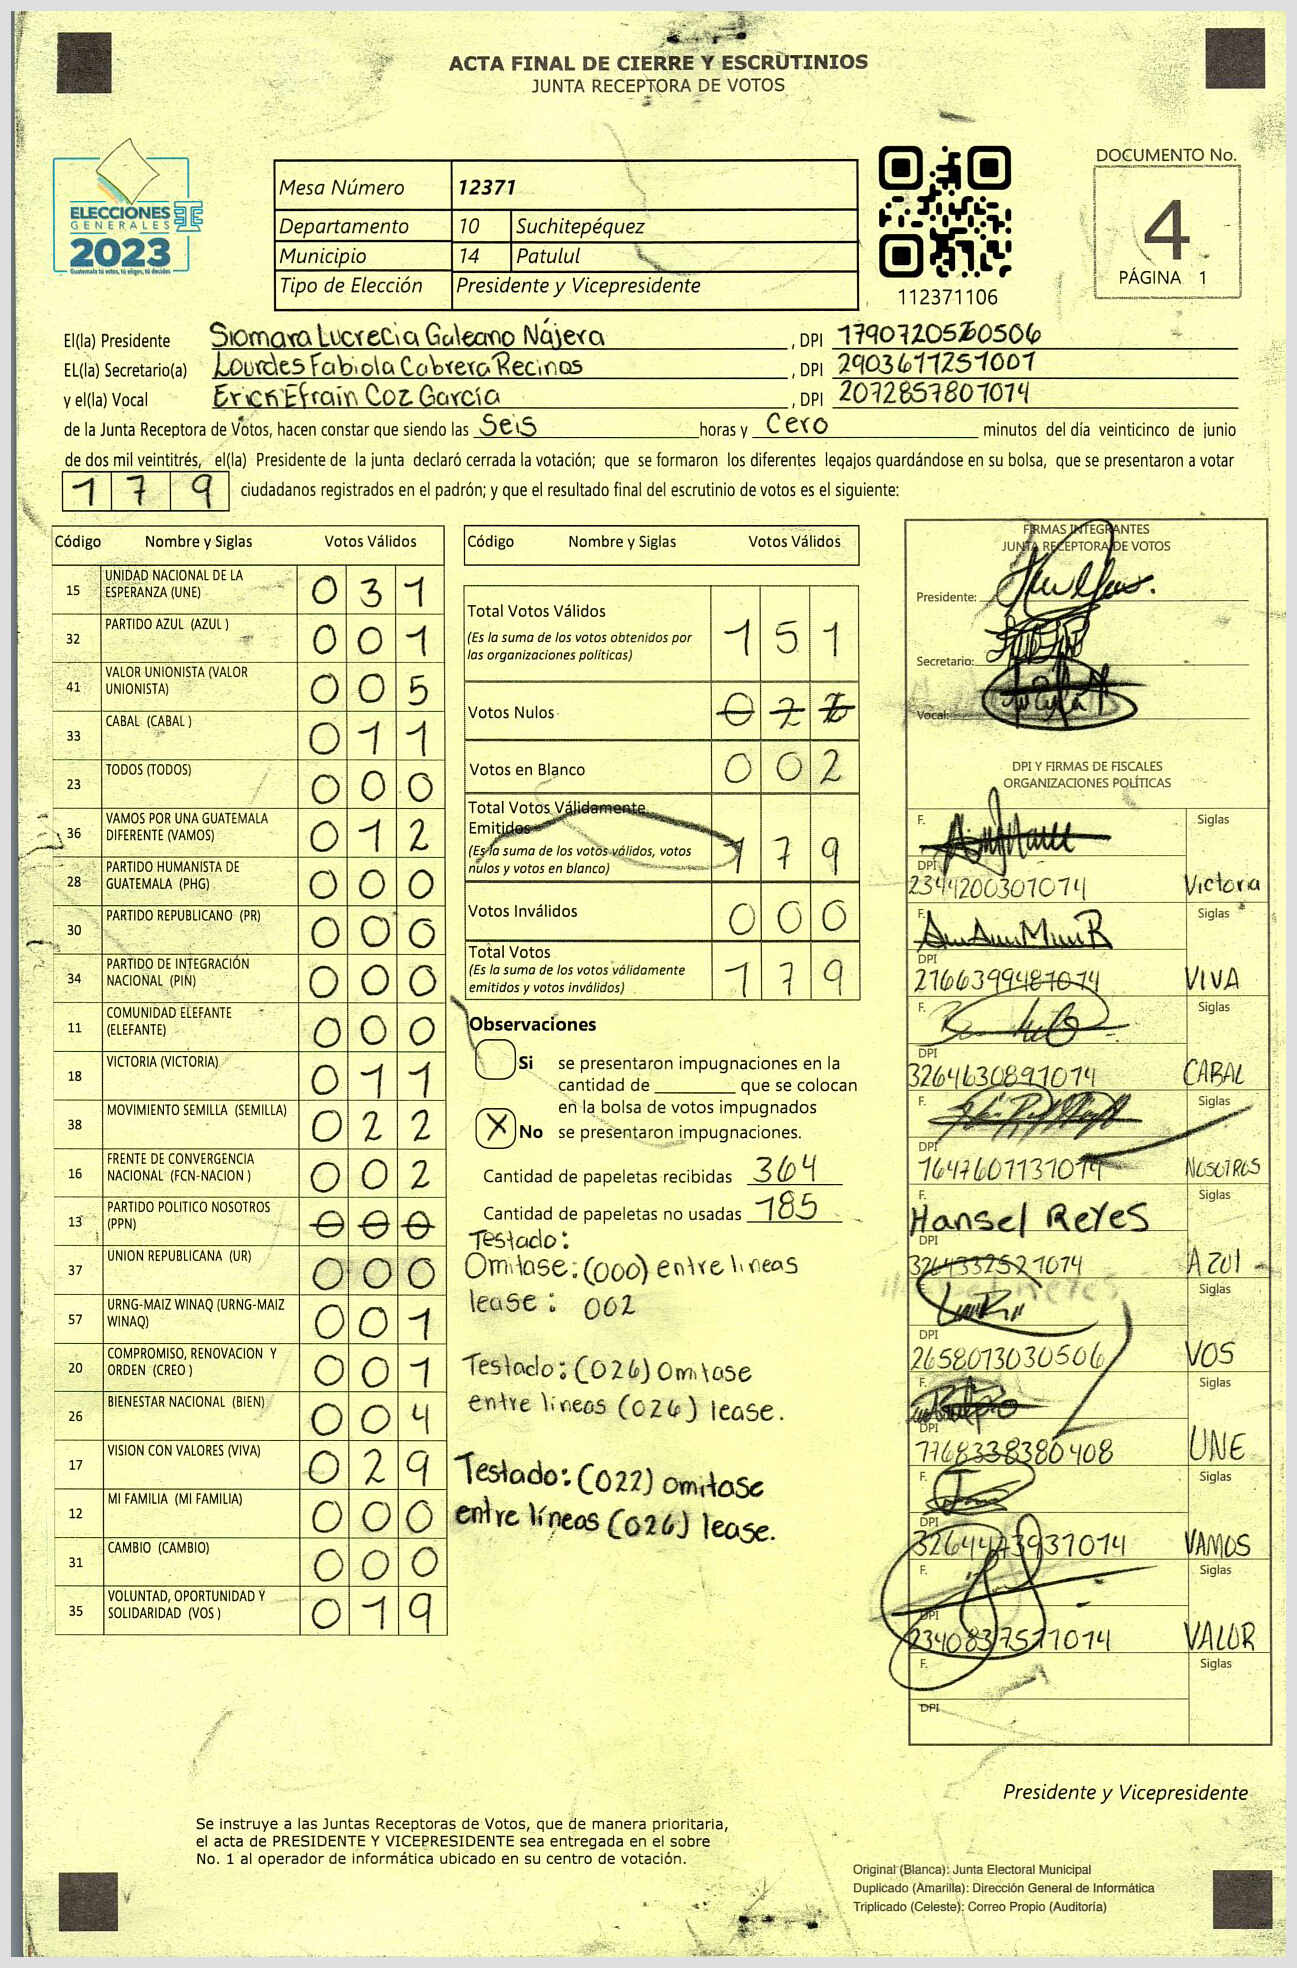 ACTA FINAL DE CIERRE Y ESCRUTINIOS
JUNTA RECEPTORA DE VOTOS
ELECCIONES
GENERALES
2023
Guatemala tú votas, tú eliges, tú decides
Mesa Número 12371
Departamento 10 Suchitepéquez
Municipio 14 Patulul
Tipo de Elección Presidente y Vicepresidente
112371106
DOCUMENTO No.
4
PÁGINA 1
El(la) Presidente Siomara Lucrecia Galeano Nájera , DPI
EL(la) Secretario(a) Lourdes Fabiola Cabrera Recinos , DPI 2903611251001
y el(la) Vocal Erick Efraín Coz García , DPI 2072857801014
de la Junta Receptora de Votos, hacen constar que siendo las Seis horas y Cero minutos del día veinticinco de junio
de dos mil veintitrés, el(la) Presidente de la junta declaró cerrada la votación; que se formaron los diferentes legajos quardándose en su bolsa, que se presentaron a votar
1 7 9 ciudadanos registrados en el padrón; y que el resultado final del escrutinio de votos es el siguiente:
Código Nombre y Siglas Votos Válidos
15 UNIDAD NACIONAL DE LA ESPERANZA (UNE) 0 3 1
32 PARTIDO AZUL (AZUL ) 0 0 1
41 VALOR UNIONISTA (VALOR UNIONISTA) 0 0 5
33 CABAL (CABAL ) 0 1 1
23 TODOS (TODOS) 0 0 0
36 VAMOS POR UNA GUATEMALA DIFERENTE (VAMOS) 0 1 2
28 PARTIDO HUMANISTA DE GUATEMALA (PHG) 0 0 0
30 PARTIDO REPUBLICANO (PR) 0 0 0
34 PARTIDO DE INTEGRACIÓN NACIONAL (PIN) 0 0 0
11 COMUNIDAD ELEFANTE (ELEFANTE) 0 0 0
18 VICTORIA (VICTORIA) 0 1 1
38 MOVIMIENTO SEMILLA (SEMILLA) 0 2 2
16 FRENTE DE CONVERGENCIA NACIONAL (FCN-NACION ) 0 0 2
13 PARTIDO POLITICO NOSOTROS (PPN) 0 0 0
37 UNION REPUBLICANA (UR) 0 0 0
57 URNG-MAIZ WINAQ (URNG-MAIZ WINAQ) 0 0 1
20 COMPROMISO, RENOVACION Y ORDEN (CREO ) 0 0 1
26 BIENESTAR NACIONAL (BIEN) 0 0 4
17 VISION CON VALORES (VIVA) 0 2 9
12 MI FAMILIA (MI FAMILIA) 0 0 0
31 CAMBIO (CAMBIO) 0 0 0
35 VOLUNTAD, OPORTUNIDAD Y SOLIDARIDAD (VOS ) 0 1 9
Código Nombre y Siglas Votos Válidos
Total Votos Válidos 1 5 1
(Es la suma de los votos obtenidos por
las organizaciones políticas)
Votos Nulos
Votos en Blanco 0 0 2
Total Votos Válidamente
Emitidos 1 7 9
(Es la suma de los votos válidos, votos
nulos y votos en blanco)
Votos Inválidos 0 0 0
Total Votos 1 7 9
(Es la suma de los votos válidamente
emitidos y votos inválidos)
Observaciones
Si se presentaron impugnaciones en la
cantidad de que se colocan
en la bolsa de votos impugnados
X No se presentaron impugnaciones.
Cantidad de papeletas recibidas 364
Cantidad de papeletas no usadas 185
Testado:
Omitase: (000) entre lineas
lease: 002
Testado: (026) Omitase
entre lineas (026) lease.
Testado: (022) omitase
entre líneas (026) lease.
FIRMAS INTEGRANTES
JUNTA RECEPTORA DE VOTOS
Presidente:
Secretario:
Vocal:
DPI Y FIRMAS DE FISCALES
ORGANIZACIONES POLÍTICAS
F. Siglas
DPI
2344200301014 Victoria
F. Siglas
DPI
2766399481014 VIVA
F. Siglas
DPI
3264630891014 CABAL
F. Siglas
DPI
1647601131014 NOSOTROS
F. Siglas
Hansel Reyes
DPI
3264332521014 AZUl
F. Siglas
DPI
2658013030506 VOS
F. Siglas
DPI
1768338380408 UNE
F. Siglas
DPI
3264473931014 VAMOS
F. Siglas
DPI
2340837521014 VALOR
F. Siglas
DPI
Presidente y Vicepresidente
Se instruye a las Juntas Receptoras de Votos, que de manera prioritaria,
el acta de PRESIDENTE Y VICEPRESIDENTE sea entregada en el sobre
No. 1 al operador de informática ubicado en su centro de votación.
Original (Blanca): Junta Electoral Municipal
Duplicado (Amarilla): Dirección General de Informática
Triplicado (Celeste): Correo Propio (Auditoría)